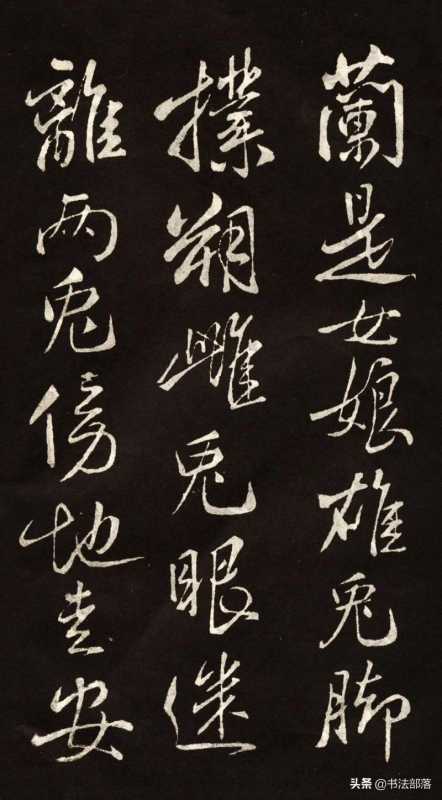 蘭是女娘雄兎脚
撲朔雌兎眼迷
離两兎傍地走安
头条 @书法部落